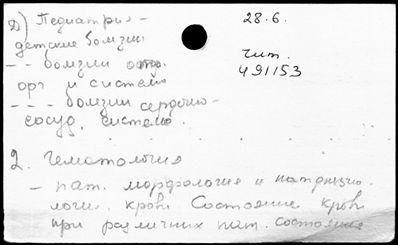 д) Педиатрия -
детские болезни
- - болезни отд.
орг и систем
- - - болезни сердечно-
сосуд. систем.
28.6.
чит.
491153
2. Гематология
- пат. морфология и патфизио-
логи. крови. Состояние крови
при различных пат. состояния